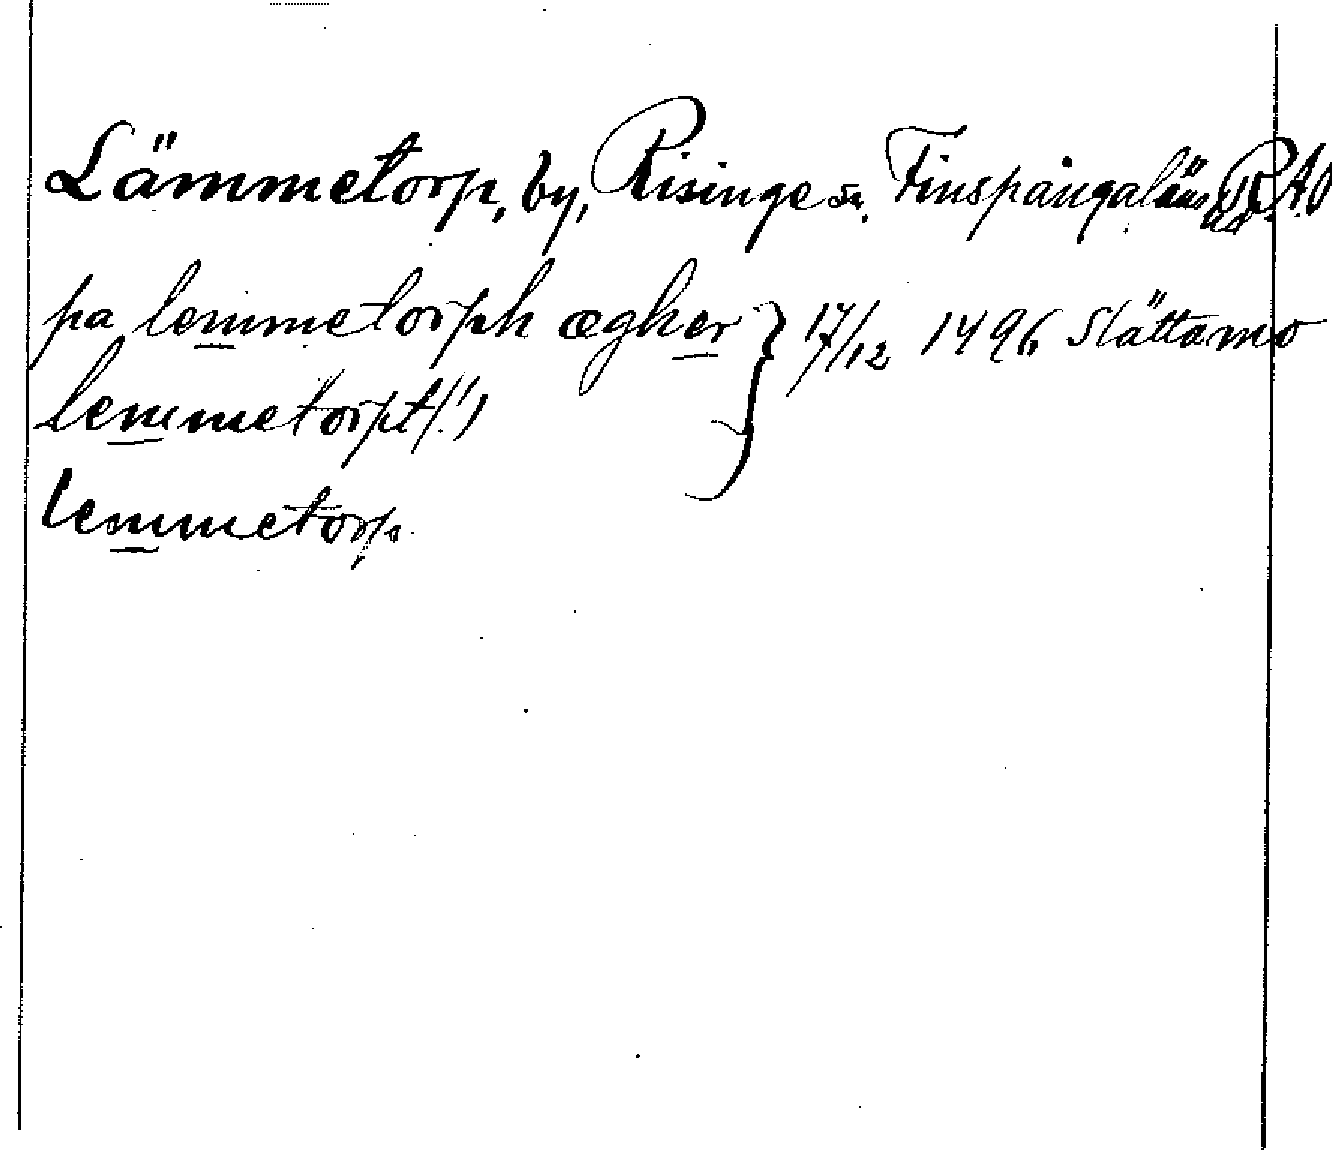 Lämmetorp, by, Risinge sn. Finspångaläns hd. R.A.O
pa lemmetorph ægher } 17/12 1496 Slättamo
lemmetorpt(!)
lemmetorp